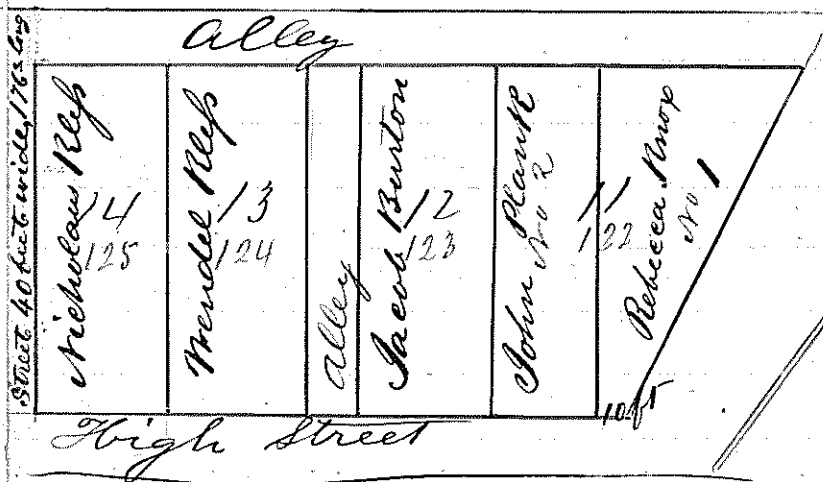 Alley
Street 40 feet wide, 176 1/2 long
Nicholaus Kless
14
125
Wendel Kless
13
124
Alley
Jacob Burton
12
123
John Plank
No 2
11
122
Rebecca Knox
No 1
10 ft
High Street